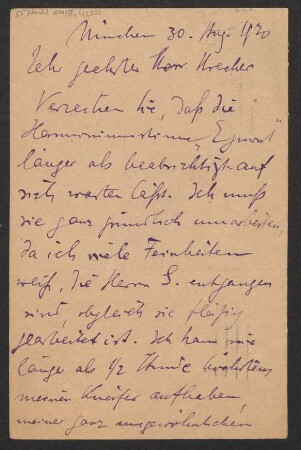 München 30. Aug. 1920
Sehr geehrter Herr Krecher
Verzeihen Sie, daß die
Harmoniumstimme „Egmont“
länger als beabsichtigt auf
sich warten läßt. Ich muß
sie ganz gründlich umarbeiten,
da ich viele Feinheiten
weiß, die Herrn S. entgangen
sind, obgleich sie fleißig
gearbeitet ist. Ich kann nie
länger als 1/2 Stunde höchstens
meinen Kneifer aufhaben,
meiner ganz ungewöhnlichen